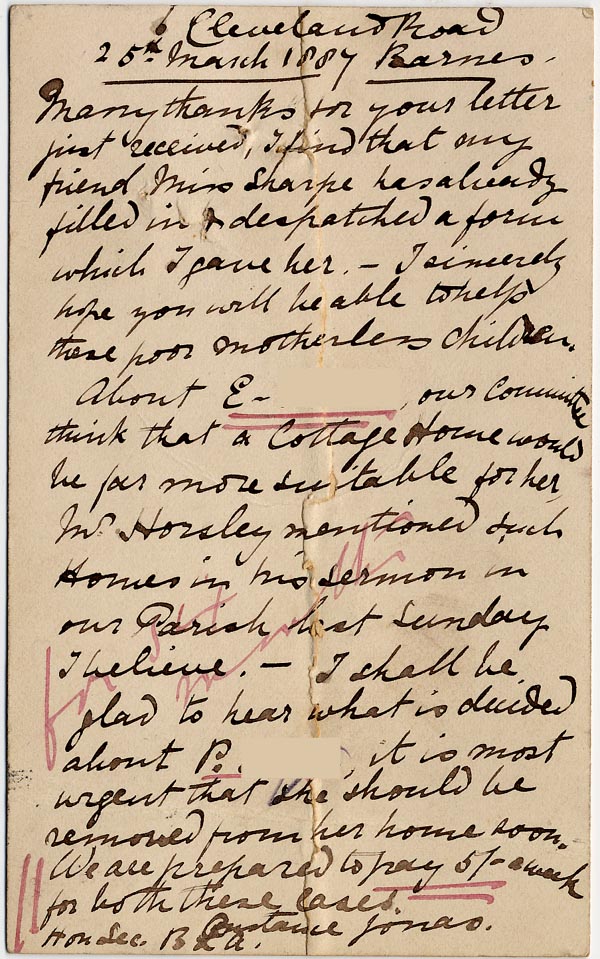 6 Cleveland Road
25th March 1887 Barnes.
Many thanks for your letter
just received, I find that my
friend Miss Sharpe has already
filled in & despatched a form
which I gave her. – I sincerely
hope you will be able to help
these poor motherless children.
About E- , our Committee
think that a Cottage Home would
be far more suitable for her,
Mr Horsley mentioned such
Homes in his sermon in
our Parish last Sunday
I believe. – I shall be
glad to hear what is decided
about P. , it is most
urgent that she should be
removed from her home soon.
We are prepared to pay 5/- a week
for both these cases.
Constance Jonas.
Hon Sec. B L A.
for